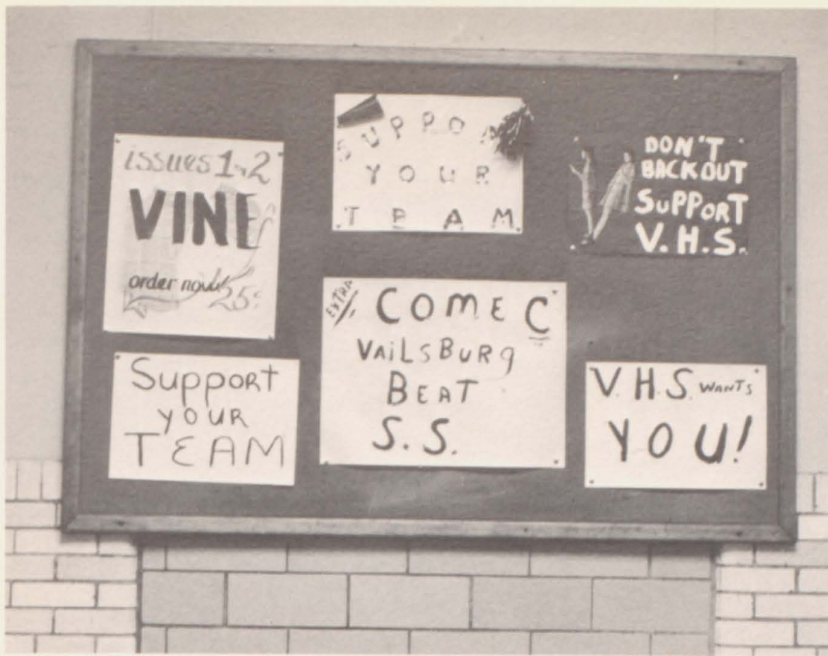 issues 1 & 2
VINE
order now
25¢
SUPPORT
YOUR
TEAM
DON'T
BACKOUT
SUPPORT
V.H.S.
Support
YOUR
TEAM
EXTRA
COME C
VAILSBURG
BEAT
S.S.
V.H.S. WANTS
YOU!